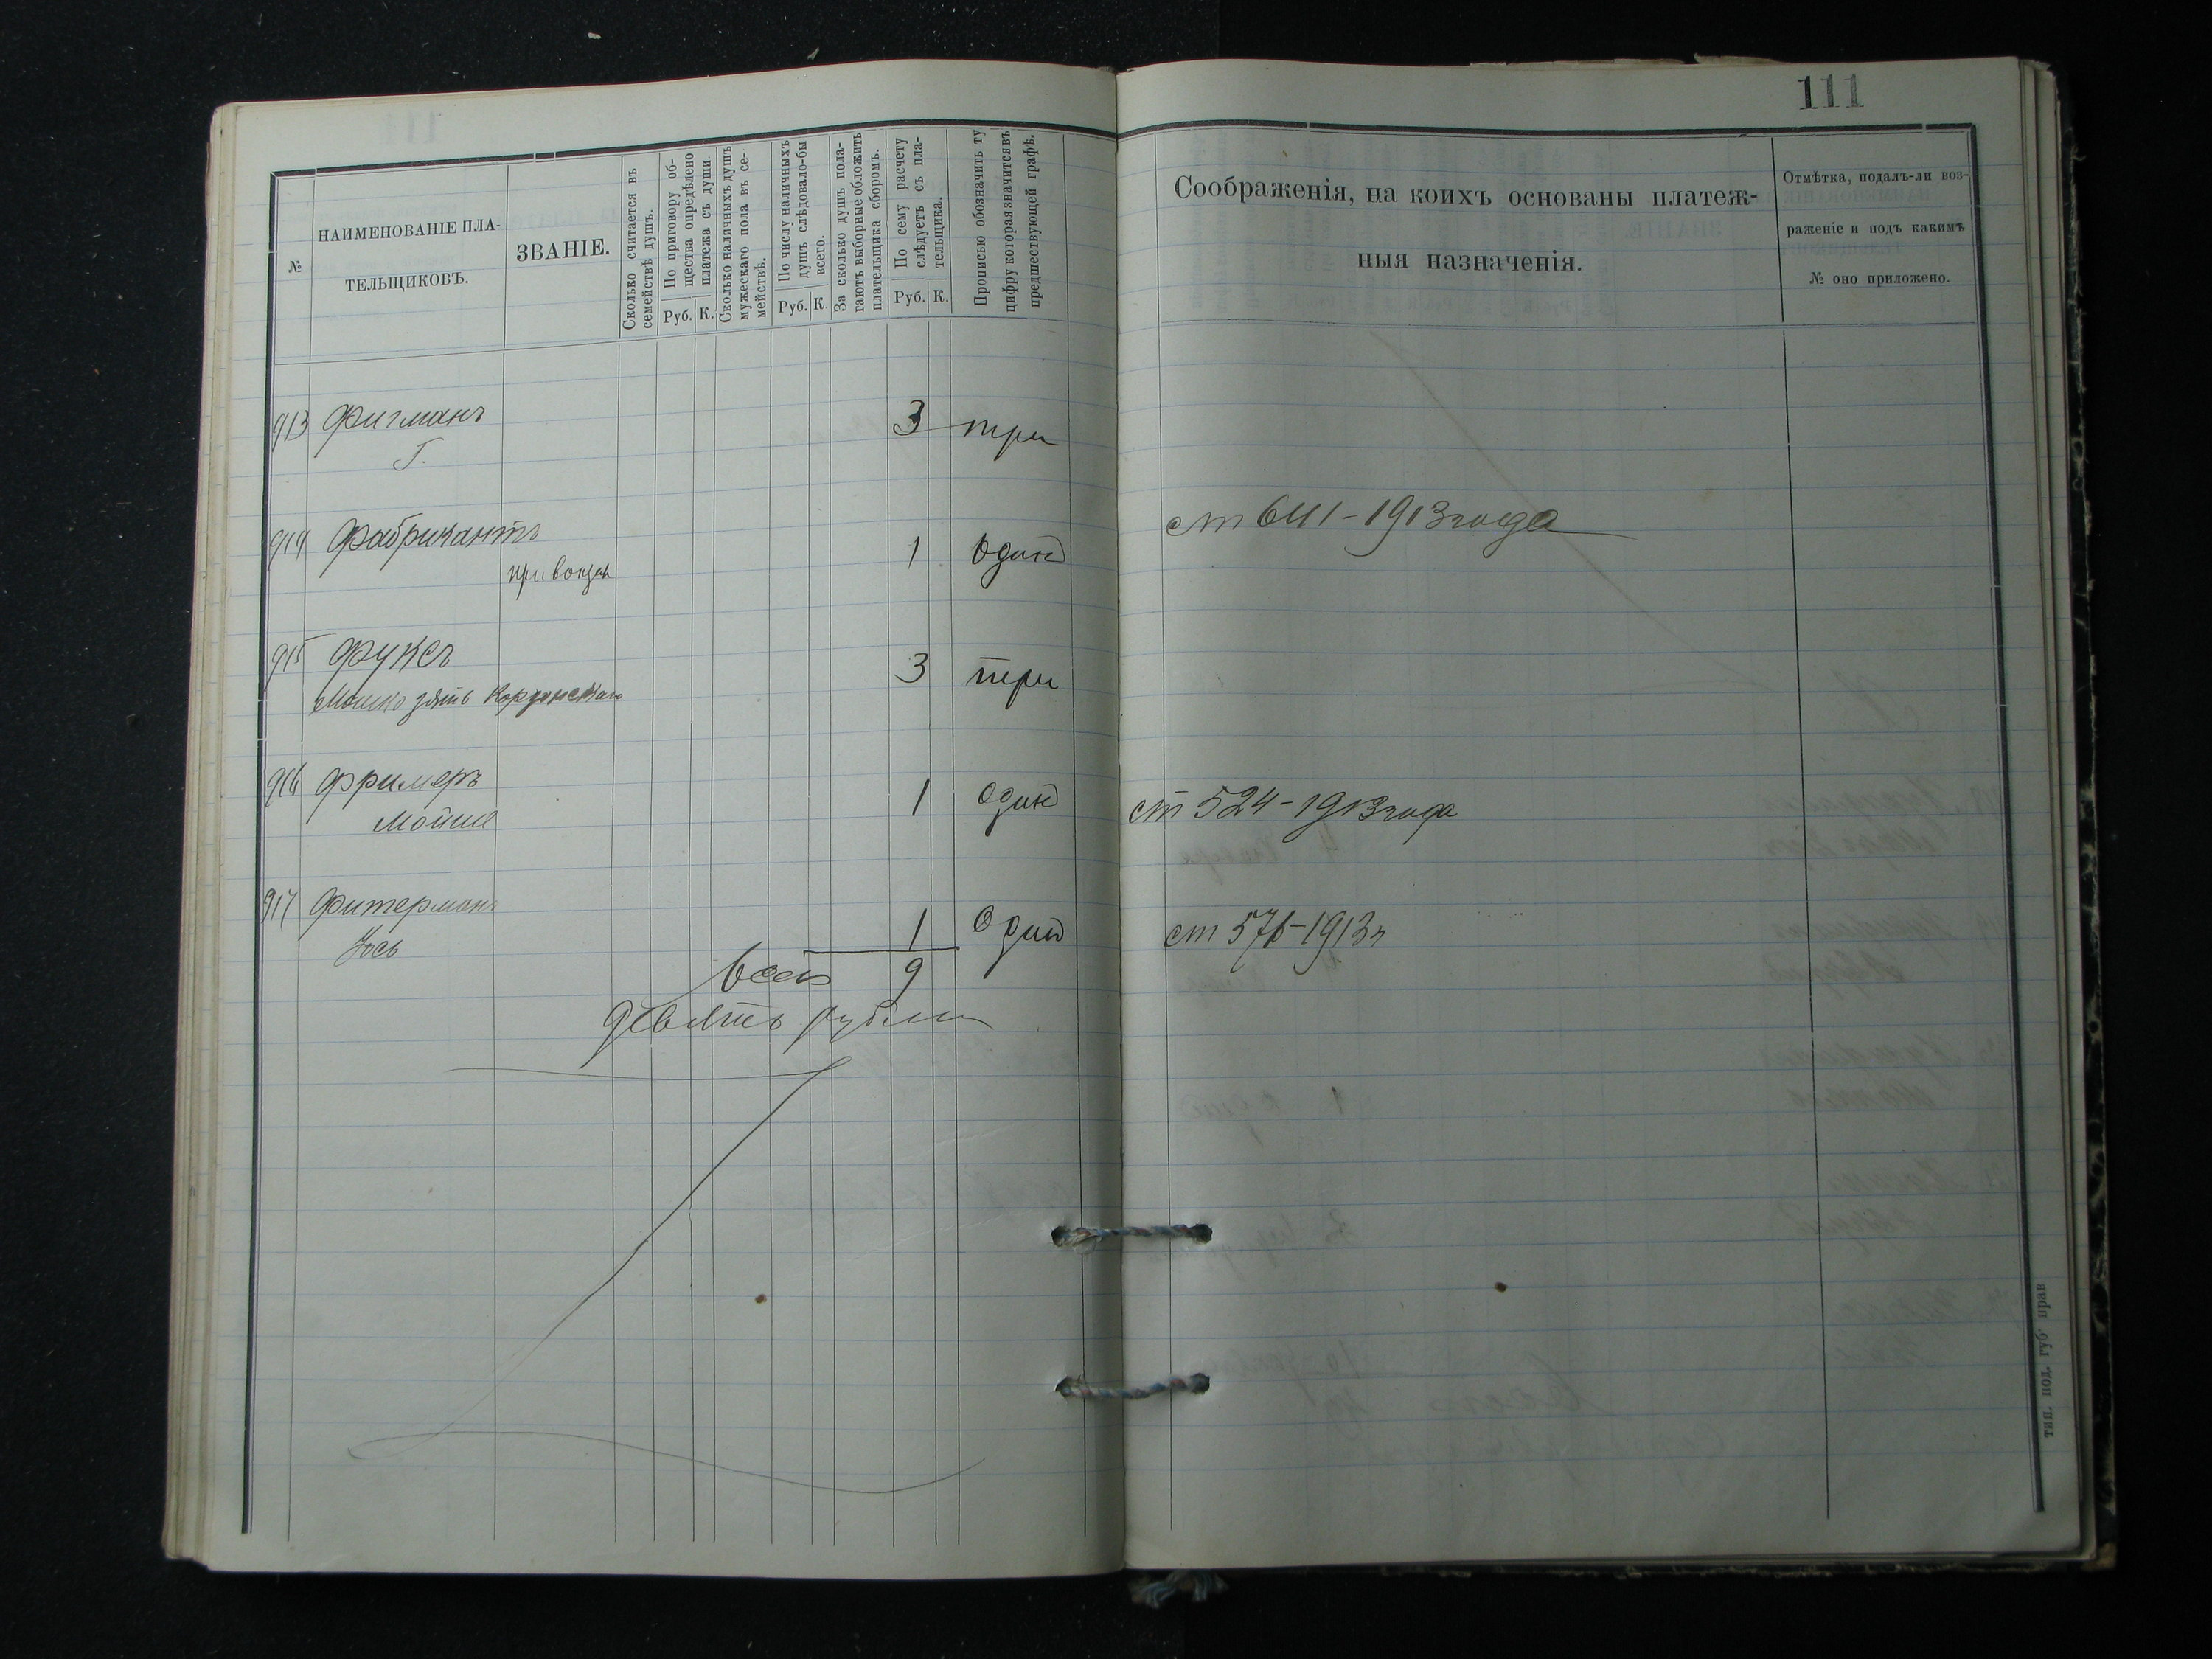 111
№
НАИМЕНОВАНІЕ ПЛА-
ТЕЛЬЩИКОВЪ.
ЗВАНІЕ.
Сколько считается въ
семействѣ душъ.
По приговору об-
щества опредѣлено
платежа съ души.
Руб. К.
Сколько наличныхъ душъ
мужескаго пола въ се-
мействѣ.
По числу наличныхъ
душъ слѣдовало-бы
всего.
Руб. К
За сколько душъ пола-
гаютъ выборные обложить
плательщика сборомъ.
По сему расчету
слѣдуетъ съ пла-
тельщика.
Руб. К.
Прописью обозначить ту
цифру которая значится въ
предшествующей графѣ.
Соображенія, на коихъ основаны платеж-
ныя назначенія.
Отмѣтка, подалъ-ли воз-
раженіе и подъ какимъ
№ оно приложено.
913 Фигманъ 3 три
Г.
914 Фабрикантъ 1 один ст 641-1913 года
915 Фуксъ 3 три
Мошко зять
916 Фримеръ 1 один ст 524-1913 года
Мойше
917 Фитерманъ 1 один ст 576-1913 г
Іось
всего 9
девять рубли
тип. под. губ. прав